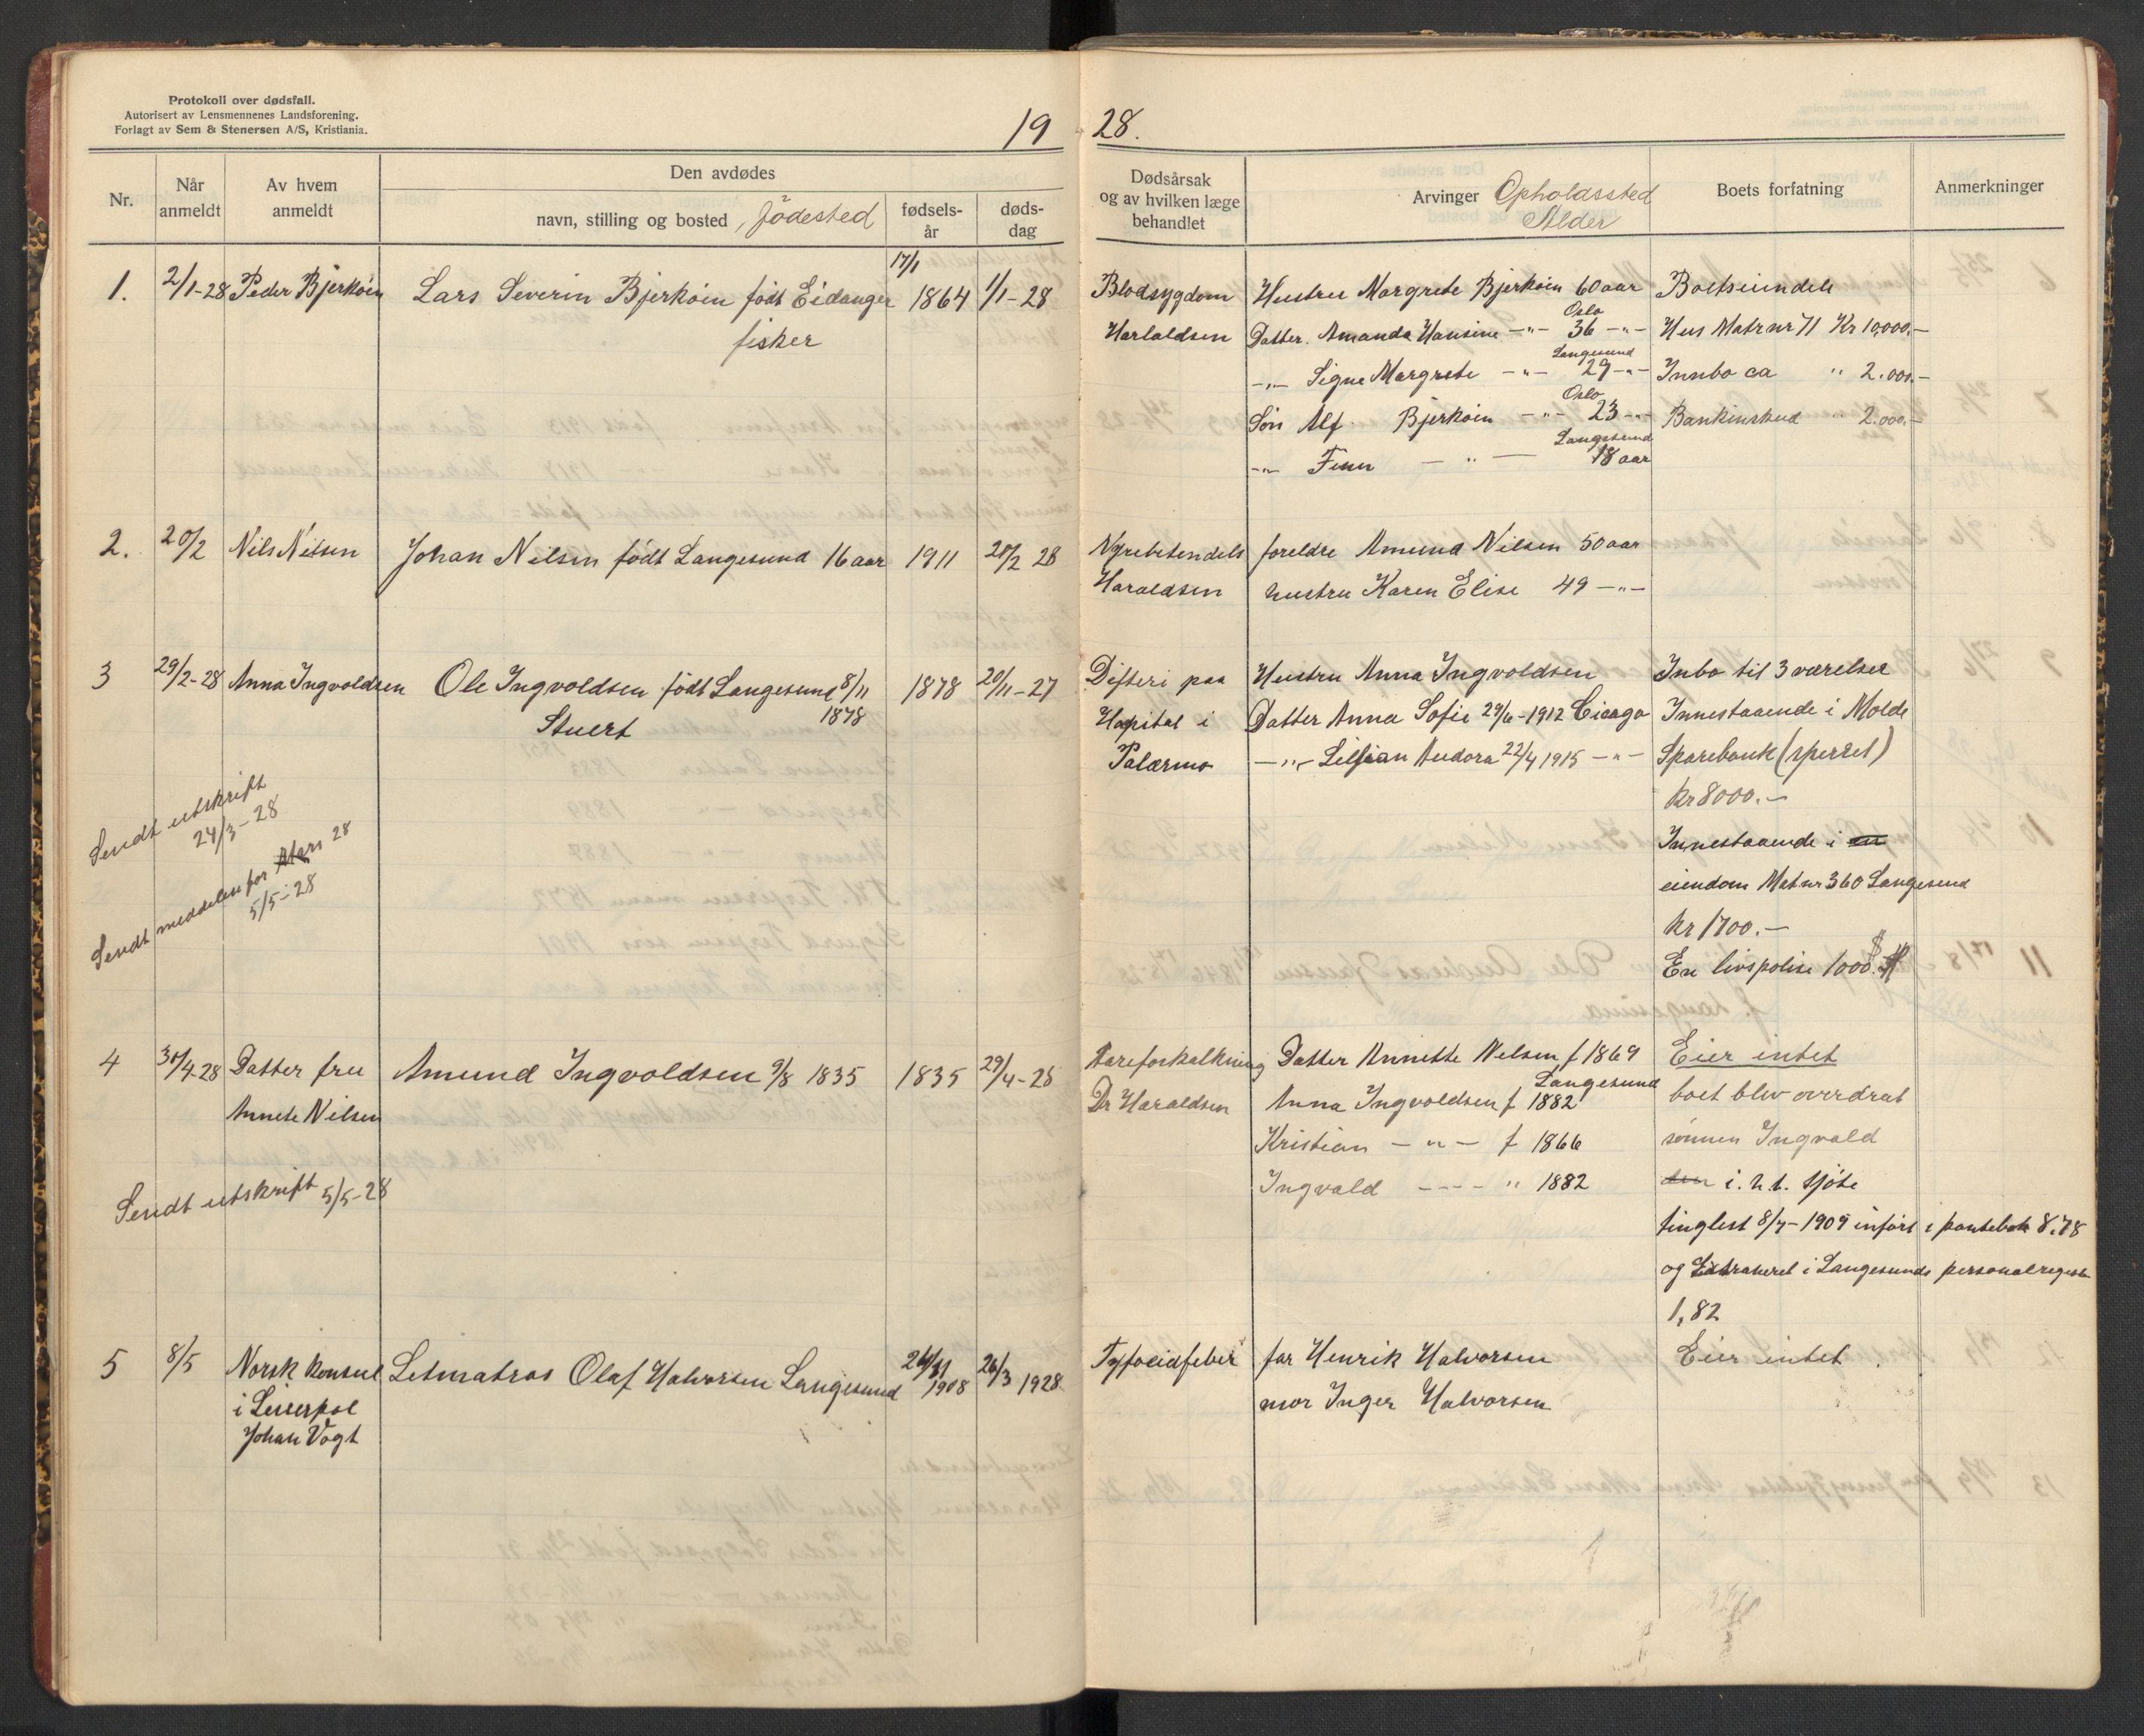 Protokoll over dødsfall.
Autorisert av Lensmennenes Landsforening.
Forlagt av Sem & Stenersen A/S, Kristiania.
19 28.
Nr.
Når anmeldt
Av hvem anmeldt
Den avdødes
navn, stilling og bosted, födested
fødsels-år
døds-dag
Dødsårsak
og av hvilken læge
behandlet
Arvinger Opholdssted
Alder
Boets forfatning
Anmerkninger
1. 2/1-28 Peder Bjerkøin Lars Severin Bjerkøin født Eidanger 17/1 1864 1/1-28
fisker
Blodsygdom
Harlaldsen
Hustru Margrete Bjerkøin 60 aar
Oslo
Datter. Amanda Hansine -"- 36 -"-
Langesund
-"- Signe Margrete -"- 29 -"-
Oslo
Søn Alf Bjerkøin -"- 23 -"-
Langesund
-"- Finn - " - 18 aar
Boets eiendele
Hus Matr nr 71 Kr 10,000.-
Innbo ca " 2.000.-
Bankinskud " 2.000.-
2. 20/2 Nils Nilsen Johan Nilsen født Langesund 16 aar 1911 20/2 28
Haraldsen
foreldre Amund Nilsen 50 aar
hustru Karen Elise 49 -"-
3 29/2-28 Anna Ingvoldsen Ole Ingvoldsen født Langesund 8/11 1878 20/11-27
1878
Stuert
Difteri paa
Hospital i
Palærmo
Hustru Anna Ingvoldsen
Datter Anna Sofie 29/6-1912 Cicago
-"- Lillian Audora 22/4 1915 -"-
Inbo til 3 værelser
Innestaaende i Molde
Sparebank (sperret)
kr 8000.-
Innestaaende i en
eiendom Mat nr 360 Langesund
kr 1700.-
En livspolise 1000.$
Sendt utskrift
24/3-28
Sendt meddelse for Mars 28
5/5-28
4 30/4-28 Datter fru Amund Ingvoldsen 9/8 1835 1835 29/4-28
Annete Nilsen
Aareforkalkning
Dr Haraldsen
Datter Annette Nelsen f 1869
Langesund
Anna Ingvoldsen f 1882
Kristian - " - f 1866
Ingvald - - - - " 1882
Eier intet
boet blev overdrat
sønnen Ingvald
den i. h. t. skjöte
tinglest 8/7-1909 infört i pantebok 8.78
og Extraheret i Langesunds personalregister
1,82
Sendt utskrift 5/5-28
5 8/5 Norsk konsul Letmatros Olaf Halvorsen Langesund 1908 26/3 1928
i Leiverpol
Johan Vogt
Tyfoeidfeber
far Henrik Halvorsen
mor Inger Halvorsen
Eier intet.